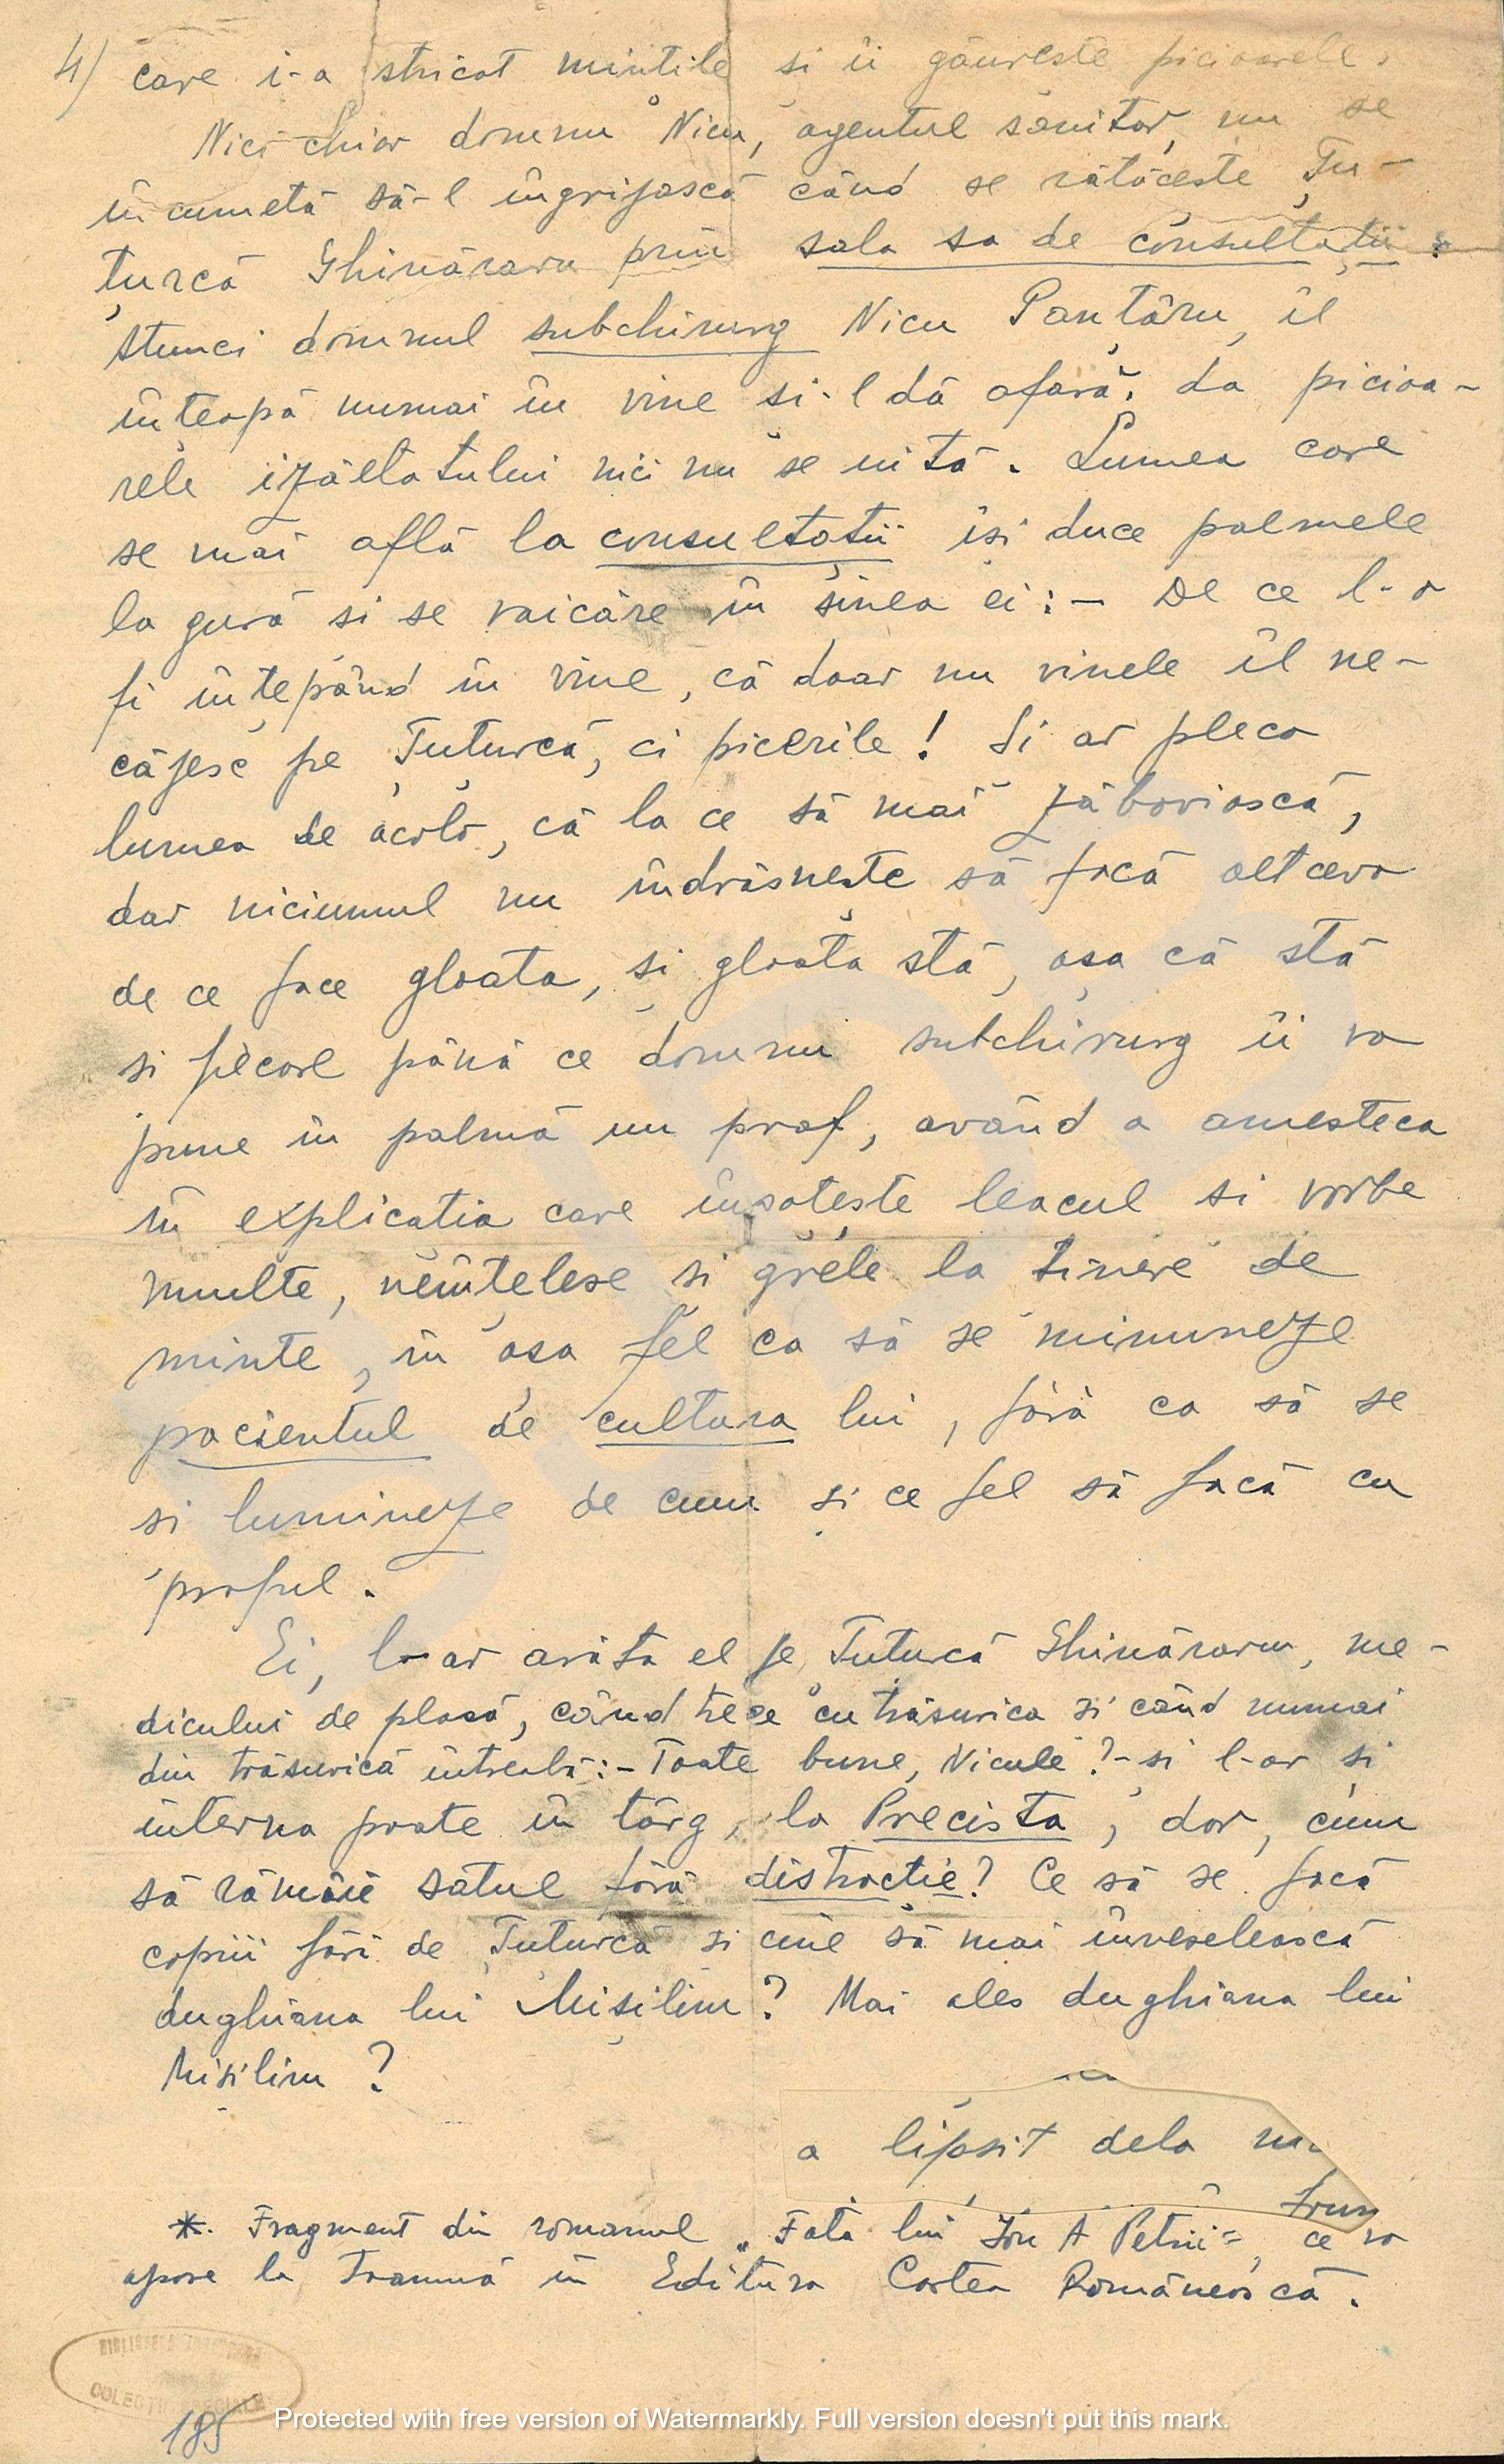 4) care i-a stricat mintile si îi găureste picioarele.
Nici chiar domnu Nicu, agentul sanitar, nu se
încumetă să-l îngrijască când se rătăceste Țu-
țurcă Ghinăraru prin sala sa de consultații.
Atunci domnul subchirurg Nicu Panțâru, îl
înteapă numai în vine si-l dă afară. La picioa-
rele izăltatului nici nu se uită. Lumea care
se mai află la consultații își duce palmele
la gură si se vaicăre în sinea ei: - De ce l-o
fi înțepând în vine, că doar nu vinele îl ne-
căjesc pe Țuțurcă, ci picerile! Si ar pleca
lumea de acolo, că la ce să mai zăboviască,
dar niciunul nu îndrăsnește să facă altceva
de ce face gloata, și gloata stă, așa că stă
si fiecare până ce domnu subchirurg îi va
pune în palmă un praf, având a amesteca
în explicatia care însoțește leacul si vorbe
multe, neînțelese si grele la ținere de
minte, în așa fel ca să se minuneze
pacientul de cultura lui, fără ca să se
si lumineze de cum și ce fel să facă cu
praful.
Ei, l-ar arăta el pe Țuțurcă Ghinăraru, me-
dicului de plasă, când trece cu trăsurica si când numai
din trăsurică întreabă: - Toate bune, Nicule? - si l-ar și
interna poate în târg, la Precista, dar, cum
să rămâie satul fără distracție? Ce să se facă
copiii fără de Țuțurcă si cine să mai înveselească
dughiana lui Mișilim? Mai ales dughiana lui
Misilim?
a lipsit dela
*. Fragment din romanul „Fata lui Ion A Petrii", ce va
apare la toamnă în Editura Cartea Românească.
BIBLIOTECA
COLECȚII SPECIALE
185
Protected with free version of Watermarkly. Full version doesn't put this mark.